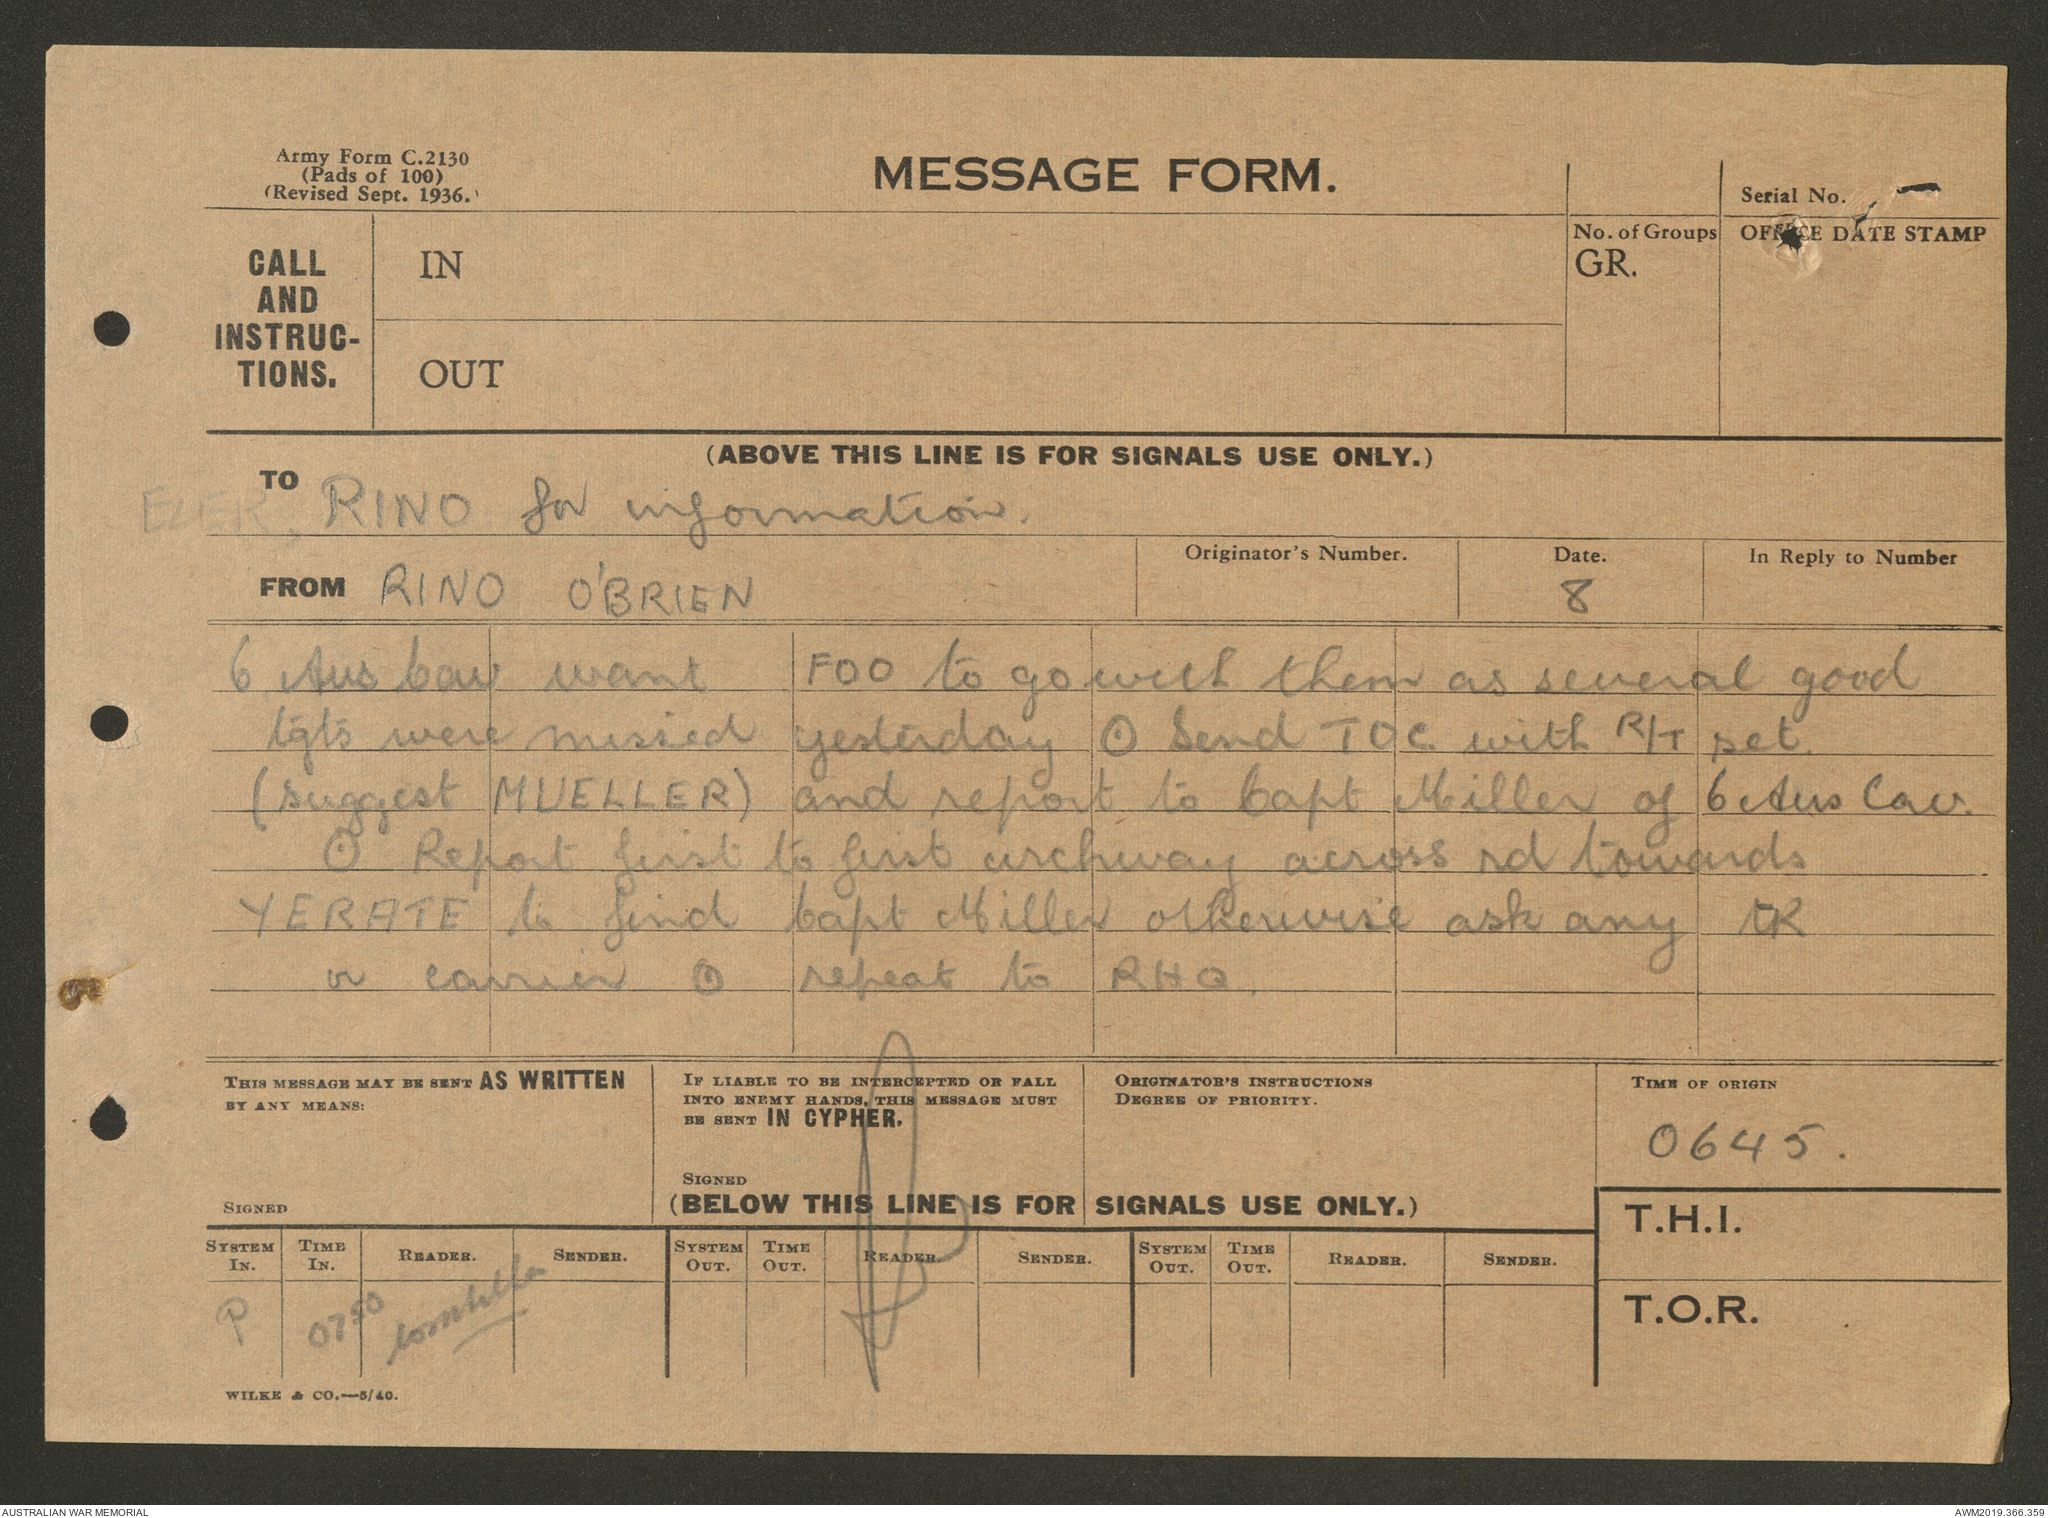 Army Form C.2130
(Pads of 100)
(Revised Sept. 1936.)
MESSAGE FORM.
Serial No.
CALL AND INSTRUC-TIONS.
IN
OUT
No. of Groups
GR.
OFFICE DATE STAMP
(ABOVE THIS LINE IS FOR SIGNALS USE ONLY.)
TO RINO for information.
FROM RINO O'BRIEN
Originator's Number.
Date.
8
In Reply to Number
6 Aus Cav want FOO to go with them as several good
tgts were missed yesterday O Send TOC with R/T set.
(suggest MUELLER) and report to Capt Miller of 6 Aus Cav.
O Report first to first archway across rd towards
YERATE to find Capt Miller otherwise ask any TK
or carrier O repeat to RHQ.
THIS MESSAGE MAY BE SENT AS WRITTEN
BY ANY MEANS:
SIGNED
IF LIABLE TO BE INTERCEPTED OR FALL
INTO ENEMY HANDS, THIS MESSAGE MUST
BE SENT IN CYPHER.
SIGNED
ORIGINATOR'S INSTRUCTIONS
DEGREE OF PRIORITY.
TIME OF ORIGIN
0645.
(BELOW THIS LINE IS FOR SIGNALS USE ONLY.)
T.H.I.
T.O.R.
SYSTEM IN. TIME IN. READER. SENDER. SYSTEM OUT. TIME OUT. READER. SENDER. SYSTEM OUT. TIME OUT. READER. SENDER.
P 0750
WILKE & CO.—5/40.
AUSTRALIAN WAR MEMORIAL
AWM2019.366.359